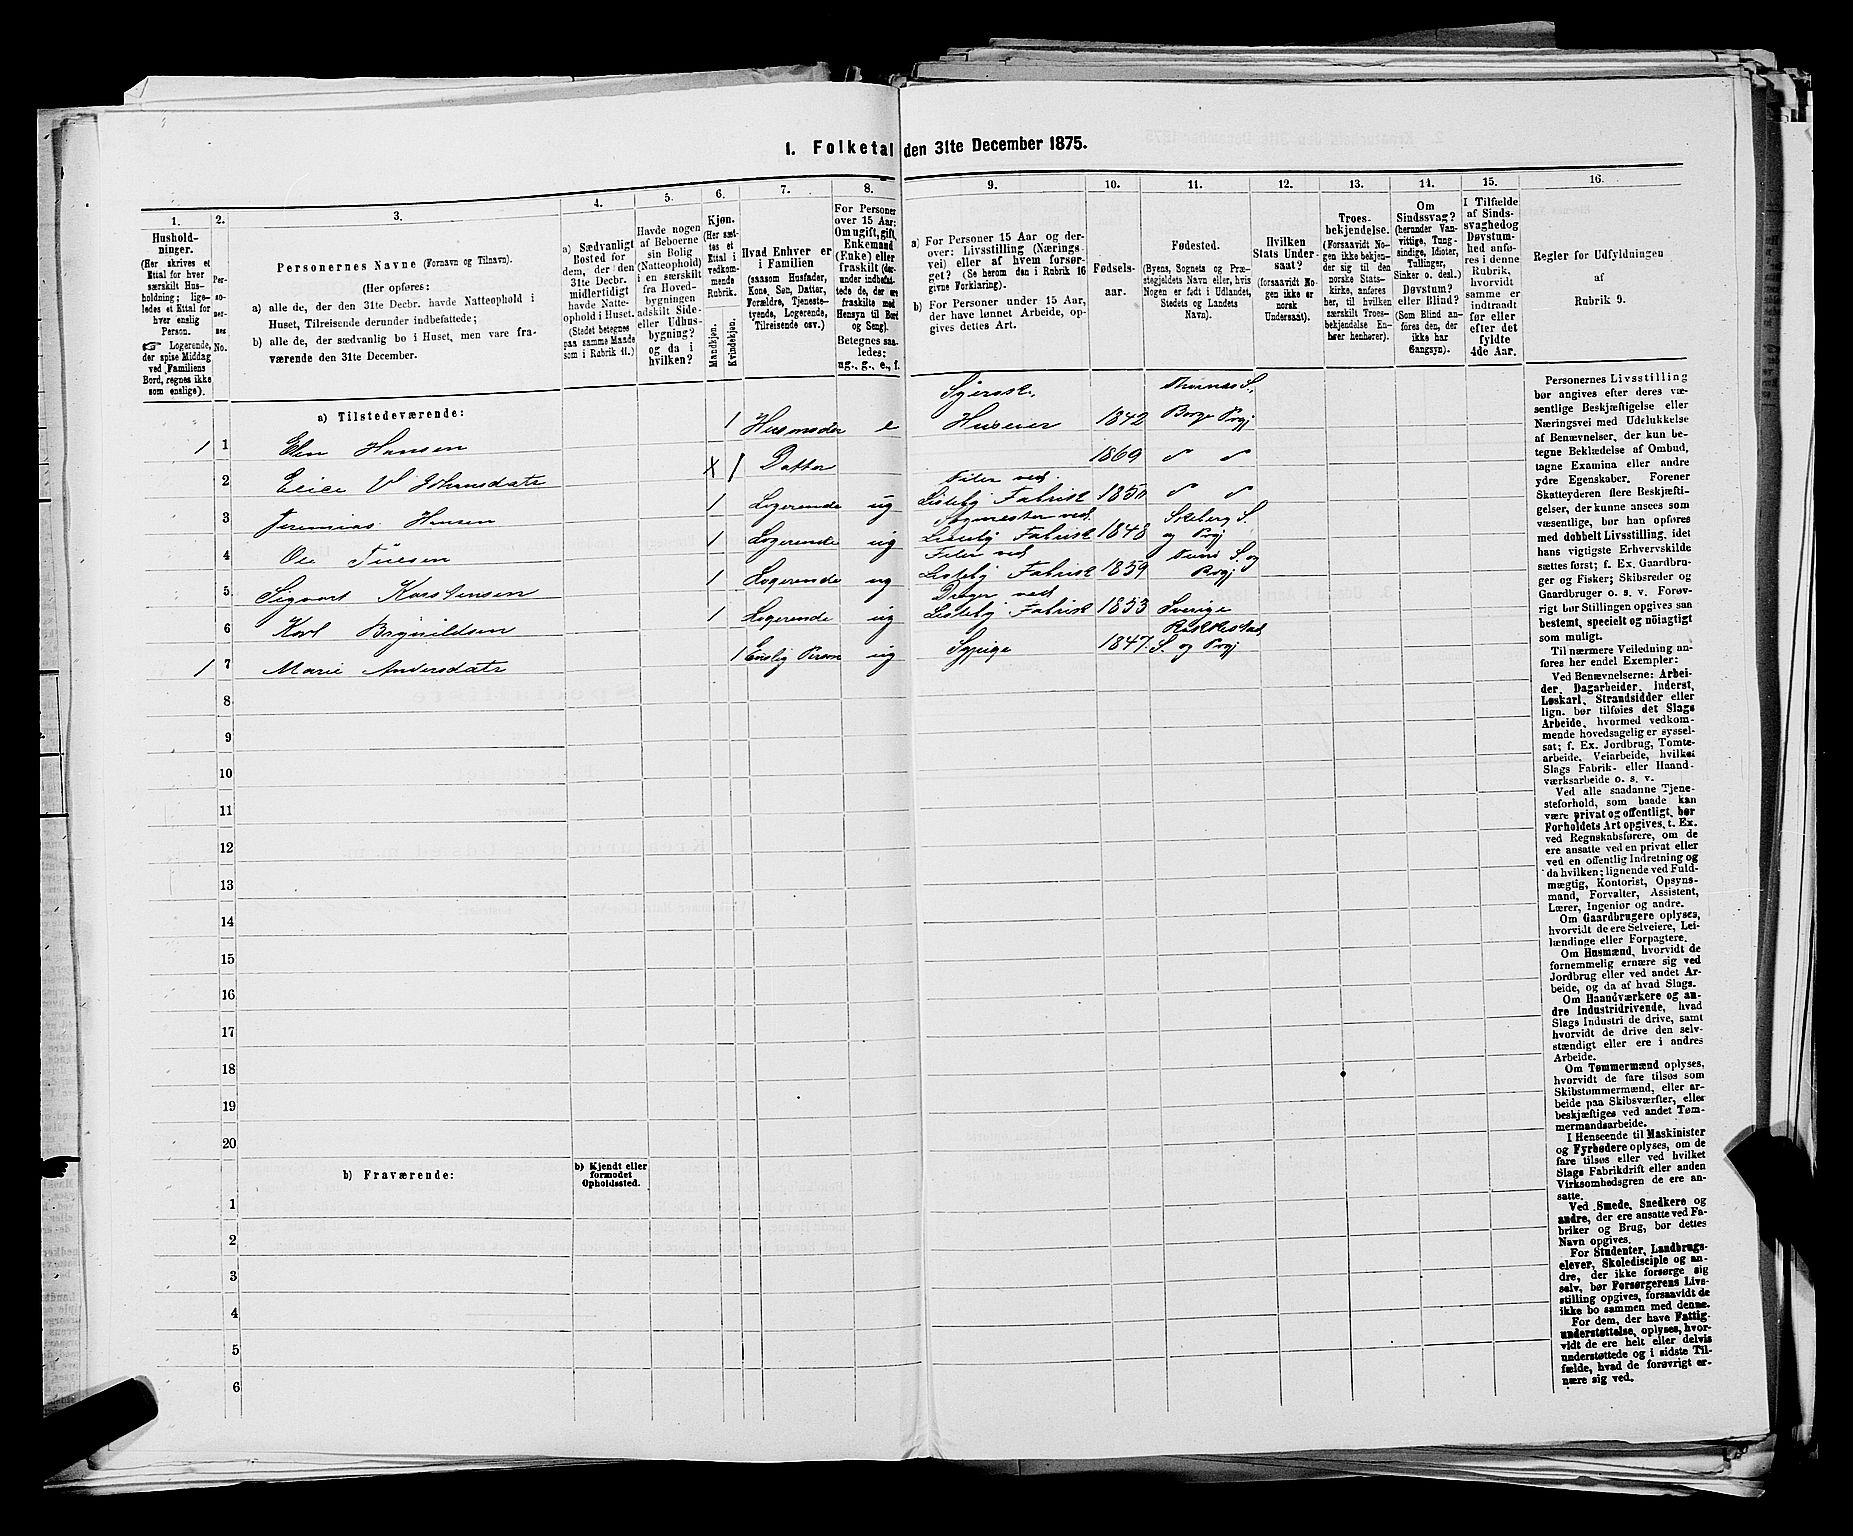 1. Folketal den 31te December 1875.
1.
2.
3.
4.
5.
6.
7.
8.
9.
10.
11.
12.
13.
14.
15.
16.
Hushold-
ninger.
(Her skrives et
Ettal for hver
særskilt Hus-
holdning; lige-
ledes et Ettal for
hver enslig
Person.
☞ Logerende,
der spise Middag
ved Familiens
Bord, regnes ikke
som enslige).
Per-
so-
ner-
nes
No.
Personernes Navne (Fornavn og Tilnavn).
(Her opføres:
a) alle de, der den 31te Decbr. havde Natteophold i
Huset, Tilreisende derunder indbefattede;
b) alle de, der sædvanlig bo i Huset, men vare fra-
værende den 31te December.
a) Sædvanligt
Bosted for
dem, der den
31te Decbr.
midlertidigt
havde Natte-
ophold i Huset.
(Stedet betegnes
paa samme Maade
som i Rubrik 11.)
Havde nogen
af Beboerne
sin Bolig
(Natteophold)
i en særskilt
fra Hoved-
bygningen
adskilt Side-
eller Udhus-
bygning?
og da i
hvilken?
Kjøn.
(Her sæt-
tes et
Ettal i
vedkom-
mende
Rubrik.
Mandkjøn.
Kvindekjøn.
Hvad Enhver er
i Familien
(saasom Husfader,
Kone, Søn, Datter,
Forældre, Tjeneste-
tyende, Logerende,
Tilreisende osv.)
For Personer
over 15 Aar:
Om ugift, gift,
Enkemand
(Enke) eller
fraskilt (der-
under indbefat-
tede de, der ere
fraskilte med
Hensyn til Bord
og Seng).
Betegnes saa-
ledes:
ug., g., e., f.
a) For Personer 15 Aar og der-
over: Livsstilling (Nærings-
vei) eller af hvem forsør-
get? (Se herom den i Rubrik 16
givne Forklaring).
b) For Personer under 15 Aar,
der have lønnet Arbeide, op-
gives dettes Art.
Fødsels-
aar.
Fødested.
(Byens, Sognets og Præ-
stegjeldets Navn eller, hvis
Nogen er født i Udlandet,
Stedets og Landets
Navn).
Hvilken
Stats Under-
saat?
(forsaavidt No-
gen ikke er
norsk
Undersaat).
Troes-
bekjendelse.
(Forsaavidt No-
gen ikke bekjen-
der sig til den
norske Stats-
kirke, anføres
her, til hvilken
særskilt Troes-
bekjendelse En-
hver henhører).
Om
Sindssvag?
(herunder Van-
vittige, Tung-
sindige, Idioter,
Tullinger,
Sinker o. desl.)
Døvstum?
eller Blind?
(Som Blind an-
føres den, der
ikke har
Gangsyn).
I Tilfælde
af Sinds-
svaghed og
Døvstum-
hed anfø-
res i denne
Rubrik,
hvorvidt
samme er
indtraadt
før eller
efter det
fyldte
4de Aar.
Regler for Udfyldningen
af
Rubrik 9.
a) Tilstedeværende:
1 1 Elen Hansen 1 Husmoder e Syerske, Huseier 1842 Borge Prgj
2 X 1 Datter 1869
3 Jeremias Hansen 1 Logerende ug Filer ved Lisleby Fabrik
4 Ole 1 Logerende ug ved Lisleby Fabrik 1848 Skeberg S. og Prgj
5 Sigvart Karstensen 1 Logerende ug Filer ved Lisleby Fabrik 1859 S. og Prgj
6 Karl Brynildsen 1 Logerende ug Dreier ved Lisleby Fabrik 1853 Sverige
1 7 Marie Andersdatr 1 Enslig Person ug Sypige 1847 Rakkestad S. og Prgj
8
9
10
11
12
13
14
15
16
17
18
19
20
b) Fraværende:
b) Kjendt eller
formodet
Opholdssted.
1
2
3
4
5
6
Personernes Livsstilling
bør angives efter deres væ-
sentlige Beskjæftigelse eller
Næringsvei med Udelukkelse
af Benævnelser, der kun be-
tegne Beklædelse af Ombud,
tagne Examina eller andre
ydre Egenskaber. Forener
Skatteyderen flere Beskjæfti-
gelser, der kunne ansees som
væsentlige, bør han opføres
med dobbelt Livsstilling, idet
hans vigtigste Erhvervskilde
sættes først; f. Ex. Gaardbru-
ger og Fisker; Skibsreder og
Gaardbruger o. s. v. Forøv-
rigt bør Stillingen opgives saa
bestemt, specielt og nöiagtigt
som muligt.
Til nærmere Veiledning an-
føres her endel Exempler:
Ved Benævnelserne: Arbei-
der, Dagarbeider, Inderst,
Løskarl, Strandsidder eller
lign. bør tilføies det Slags
Arbeide, hvormed vedkom-
mende hovedsagelig er syssel-
sat; f. Ex. Jordbrug, Tomte-
arbeide, Veiarbeide, hvilket
Slags Fabrik- eller Haand-
værksarbeide o. s. v.
Ved alle saadanne Tjene-
steforhold, som baade kan
være privat og offentligt, bør
Forholdets Art opgives, t. Ex.
ved Regnskabsførere, om de
ere ansatte ved en privat eller
ved en offentlig Indretning og
da hvilken; lignende ved Fuld-
mægtig, Kontorist, Opsyns-
mand, Forvalter, Assistent,
Lærer, Ingeniør og andre.
Om Gaardbrugere oplyses,
hvorvidt de ere Selveiere, Lei-
lændinge eller Forpagtere.
Om Husmænd, hvorvidt de
fornemmelig ernære sig ved
Jordbrug eller ved andet Ar-
beide, og da af hvad Slags.
Om Haandværkere og an-
dre Industridrivende, hvad
Slags Industri de drive, samt
hvorvidt de drive den selv-
stændigt eller ere i andres
Arbeide.
Om Tømmermænd oplyses,
hvorvidt de fare tilsøs som
Skibstømmermænd, eller ar-
beide paa Skibsværfter, eller
beskjæftiges ved andet Tøm-
mermandsarbeide.
I Henseende til Maskinister
og Fyrbødere oplyses, om de
fare tilsøs eller ved hvilket
Slags Fabrikdrift eller anden
Virksomhedsgren de ere an-
satte.
Ved Smede, Snedkere og
andre, der ere ansatte ved Fa-
briker og Brug, bør dettes
Navn opgives.
For Studenter, Landbrugs-
elever, Skoledisciple og an-
dre, der ikke forsørge sig
selv, bør Forsørgerens Livs-
stilling opgives, forsaavidt de
ikke bo sammen med denne.
For dem, der have Fattig-
understøttelse, oplyses, hvor-
vidt de ere helt eller delvis
understøttede og i sidste Til-
fælde, hvad de forøvrigt er-
nære sig ved.